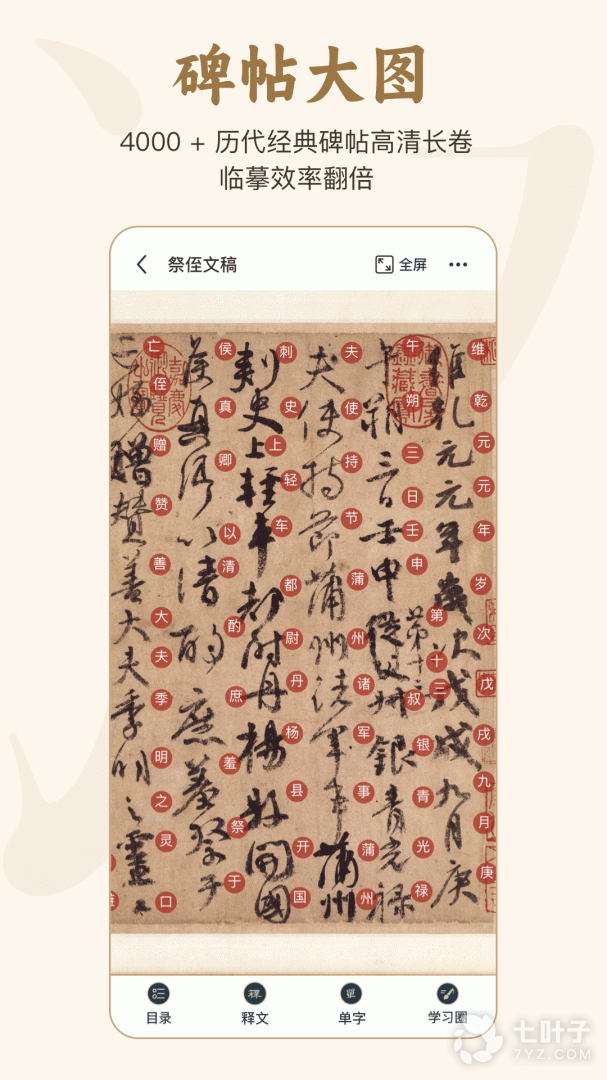 碑帖大图
4000 + 历代经典碑帖高清长卷
临摹效率翻倍
祭侄文稿
全屏
维乾元元年岁次戊戌九月庚
午朔三日壬申第十三叔银青光禄
夫使持节蒲州诸军事蒲州
刺史上轻车都尉丹杨县开国
侯真卿以清酌庶羞祭于
亡侄赠赞善大夫季明之灵口
目录
释文
单字
学习圈
七叶子
7YZ.COM